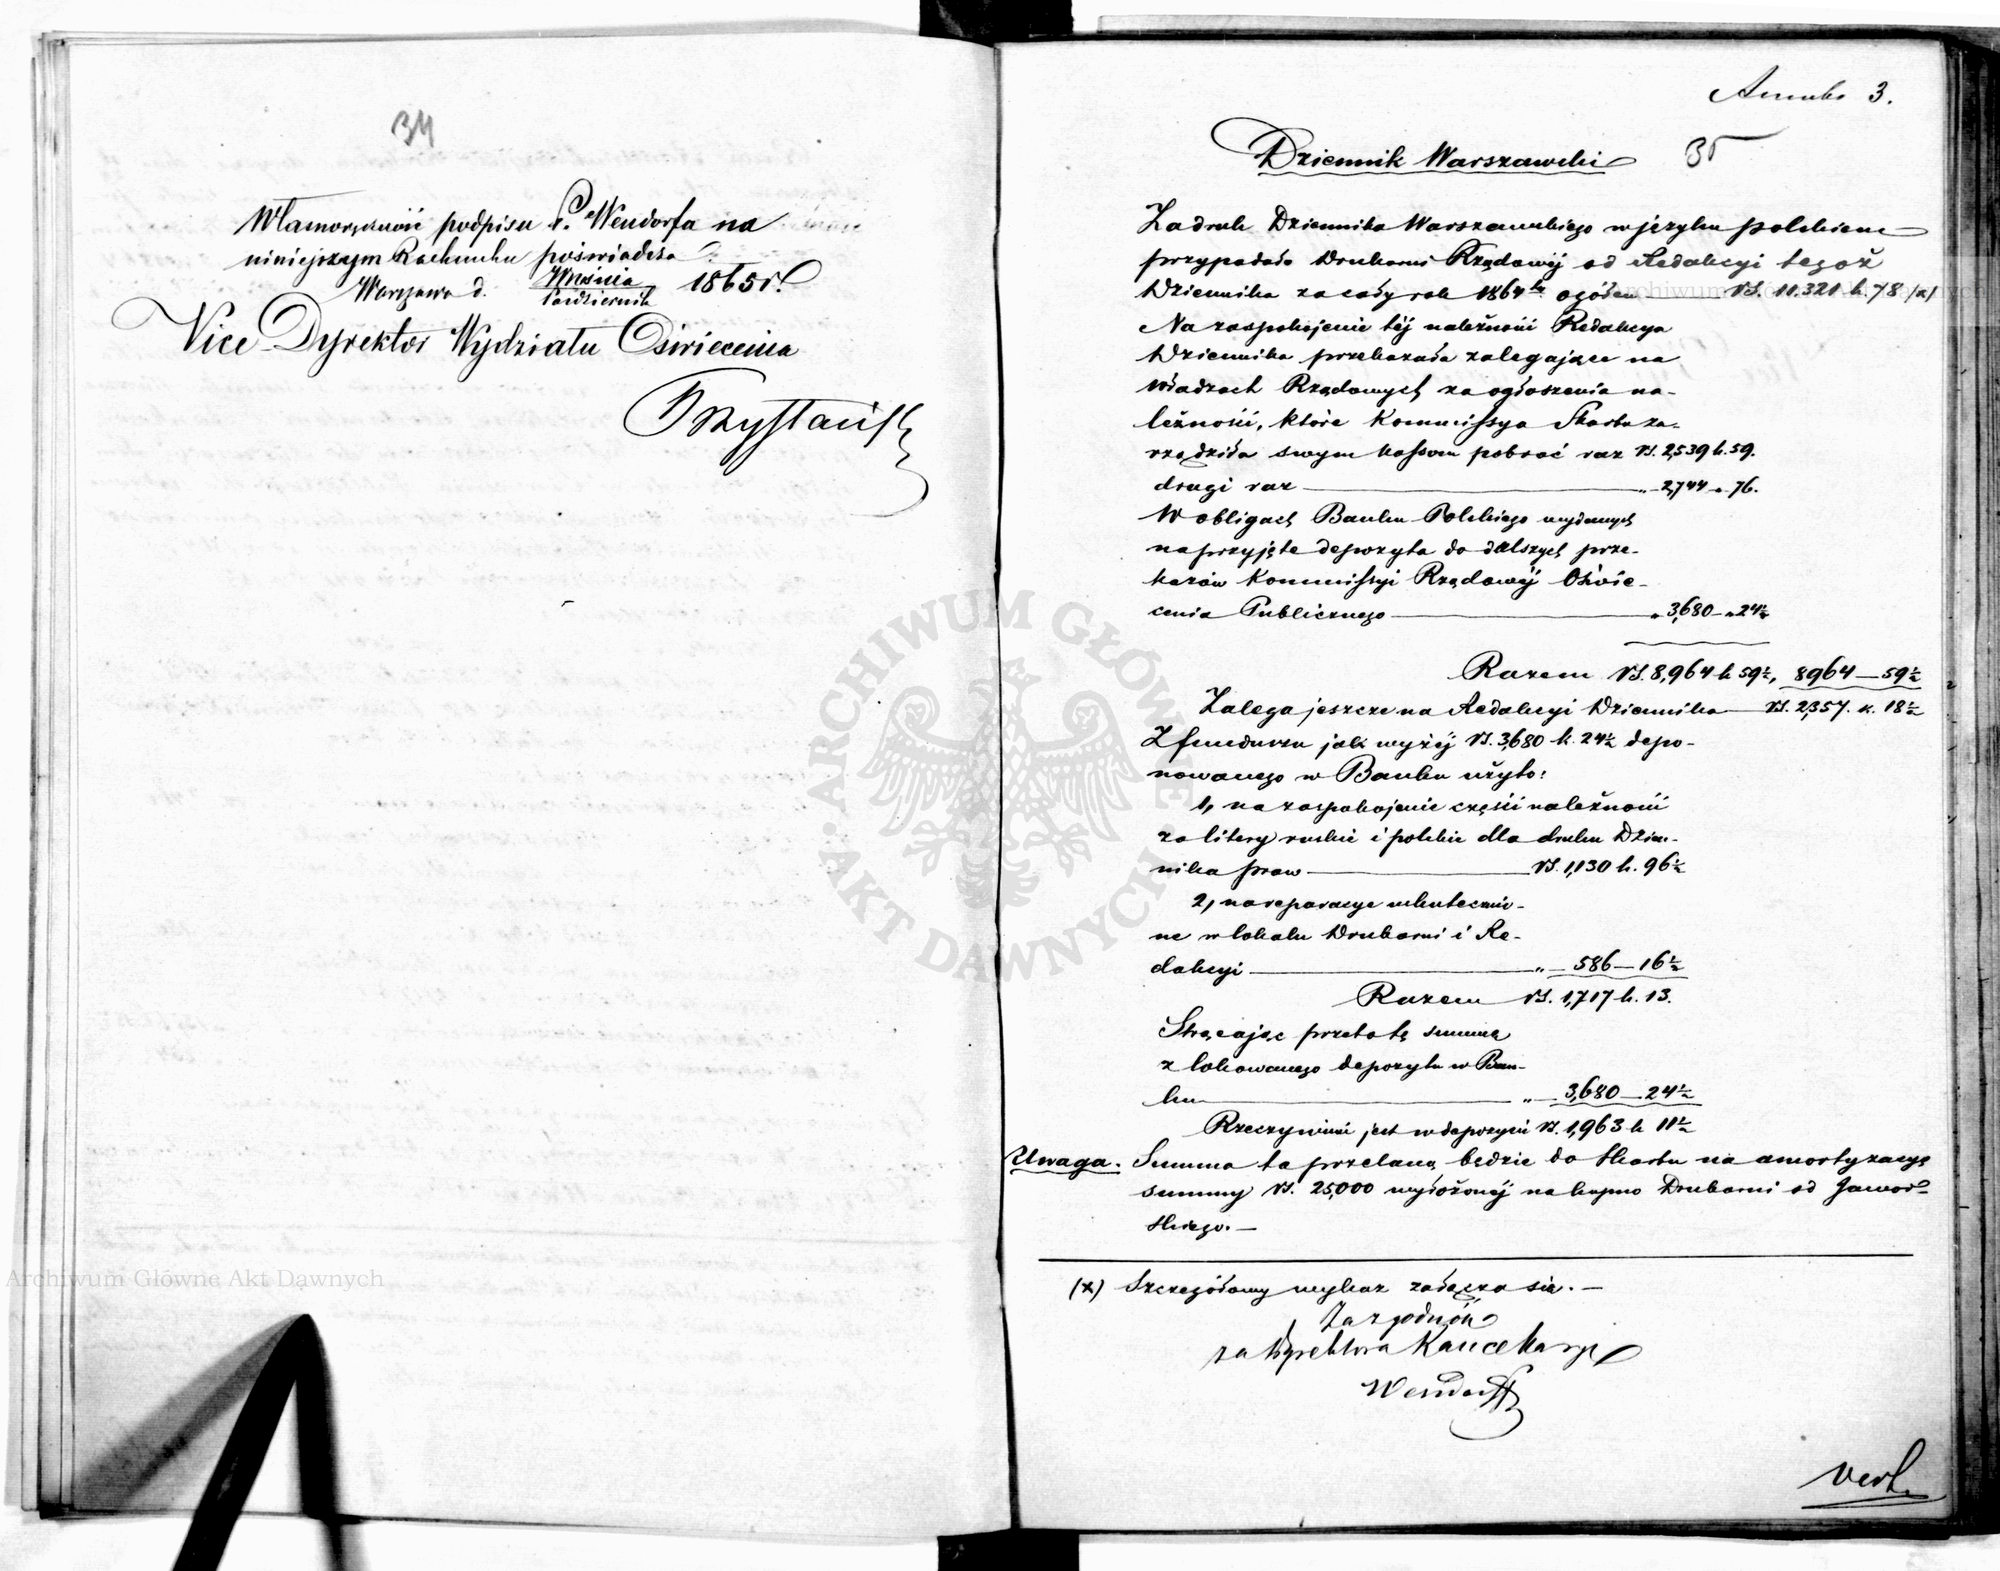 34
Własnoręczność podpisu P. Wendorfa na
niniejszym Rachunku poświadcza
Warszawa d. Września / Październik 1865 r.
Vice Dyrektor Wydziału Oświecenia
Archiwum Główne Akt Dawnych
3.
35
Dziennik Warszawski
Za druk Dziennika Warszawskiego w języku polskiem
przypadało Drukarni Rządowéj od Redakcyi tegoż
Dziennika za cały rok 1864ty ogółem rs. 11.321 k. 78 (x)
Na zaspokojenie téj należności Redakcya
Dziennika przekazała zalegające na
władzach Rządowych za ogłoszenia na-
leżności, które Kommissya Skarbu za-
rządziła swym kassom pobrać raz rs. 2,539 k. 59.
drugi raz „ 2,744 „ 76.
W obligach Banku Polskiego wydanych
na przyjęte depozyta do dalszych prze-
kazów Kommissyi Rządowéj Oświe-
cenia Publicznego „ 3,680 „ 24½
Razem rs. 8,964 k 59½, 8964 — 59½
Zalega jeszcze na Redakcyi Dziennika rs. 2,357. k. 18½
Z funduszu jak wyżéj rs. 3,680 k. 24½ depo-
nowanego w Banku użyto:
1, na zaspokojenie części należności
za litery ruskie i polskie dla druku Dzien-
nika praw rs. 1,130 k. 96½
2, na reparacye uskutecznio-
ne w lokalu Drukarni i Re-
dakcyi „ 586 — 16½
Razem rs. 1,717 k. 13.
Strącając przeto tę summę
z lokowanego depozytu w Ban-
ku „ 3,680 — 24½
Rzeczywiście jest w depozycie rs. 1,963 k 11½
Uwaga. Summa ta przelaną będzie do Skarbu na amortyzacyę
summy rs. 25,000 wyłożonéj na kupno Drukarni od Jawor-
skiego. —
(x) Szczegółowy wykaz załącza się. —
Za zgodność
za Dyrektora Kancellaryi
Wendorff
vert.
ARCHIWUM GŁÓWNE AKT DAWNYCH